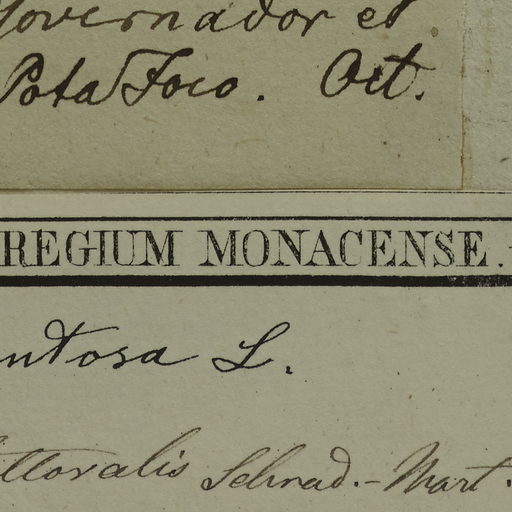 Governador et
Bota Foco. Oct.
REGIUM MONACENSE.
ntosa L.
ittoralis Schrad. - Mart.